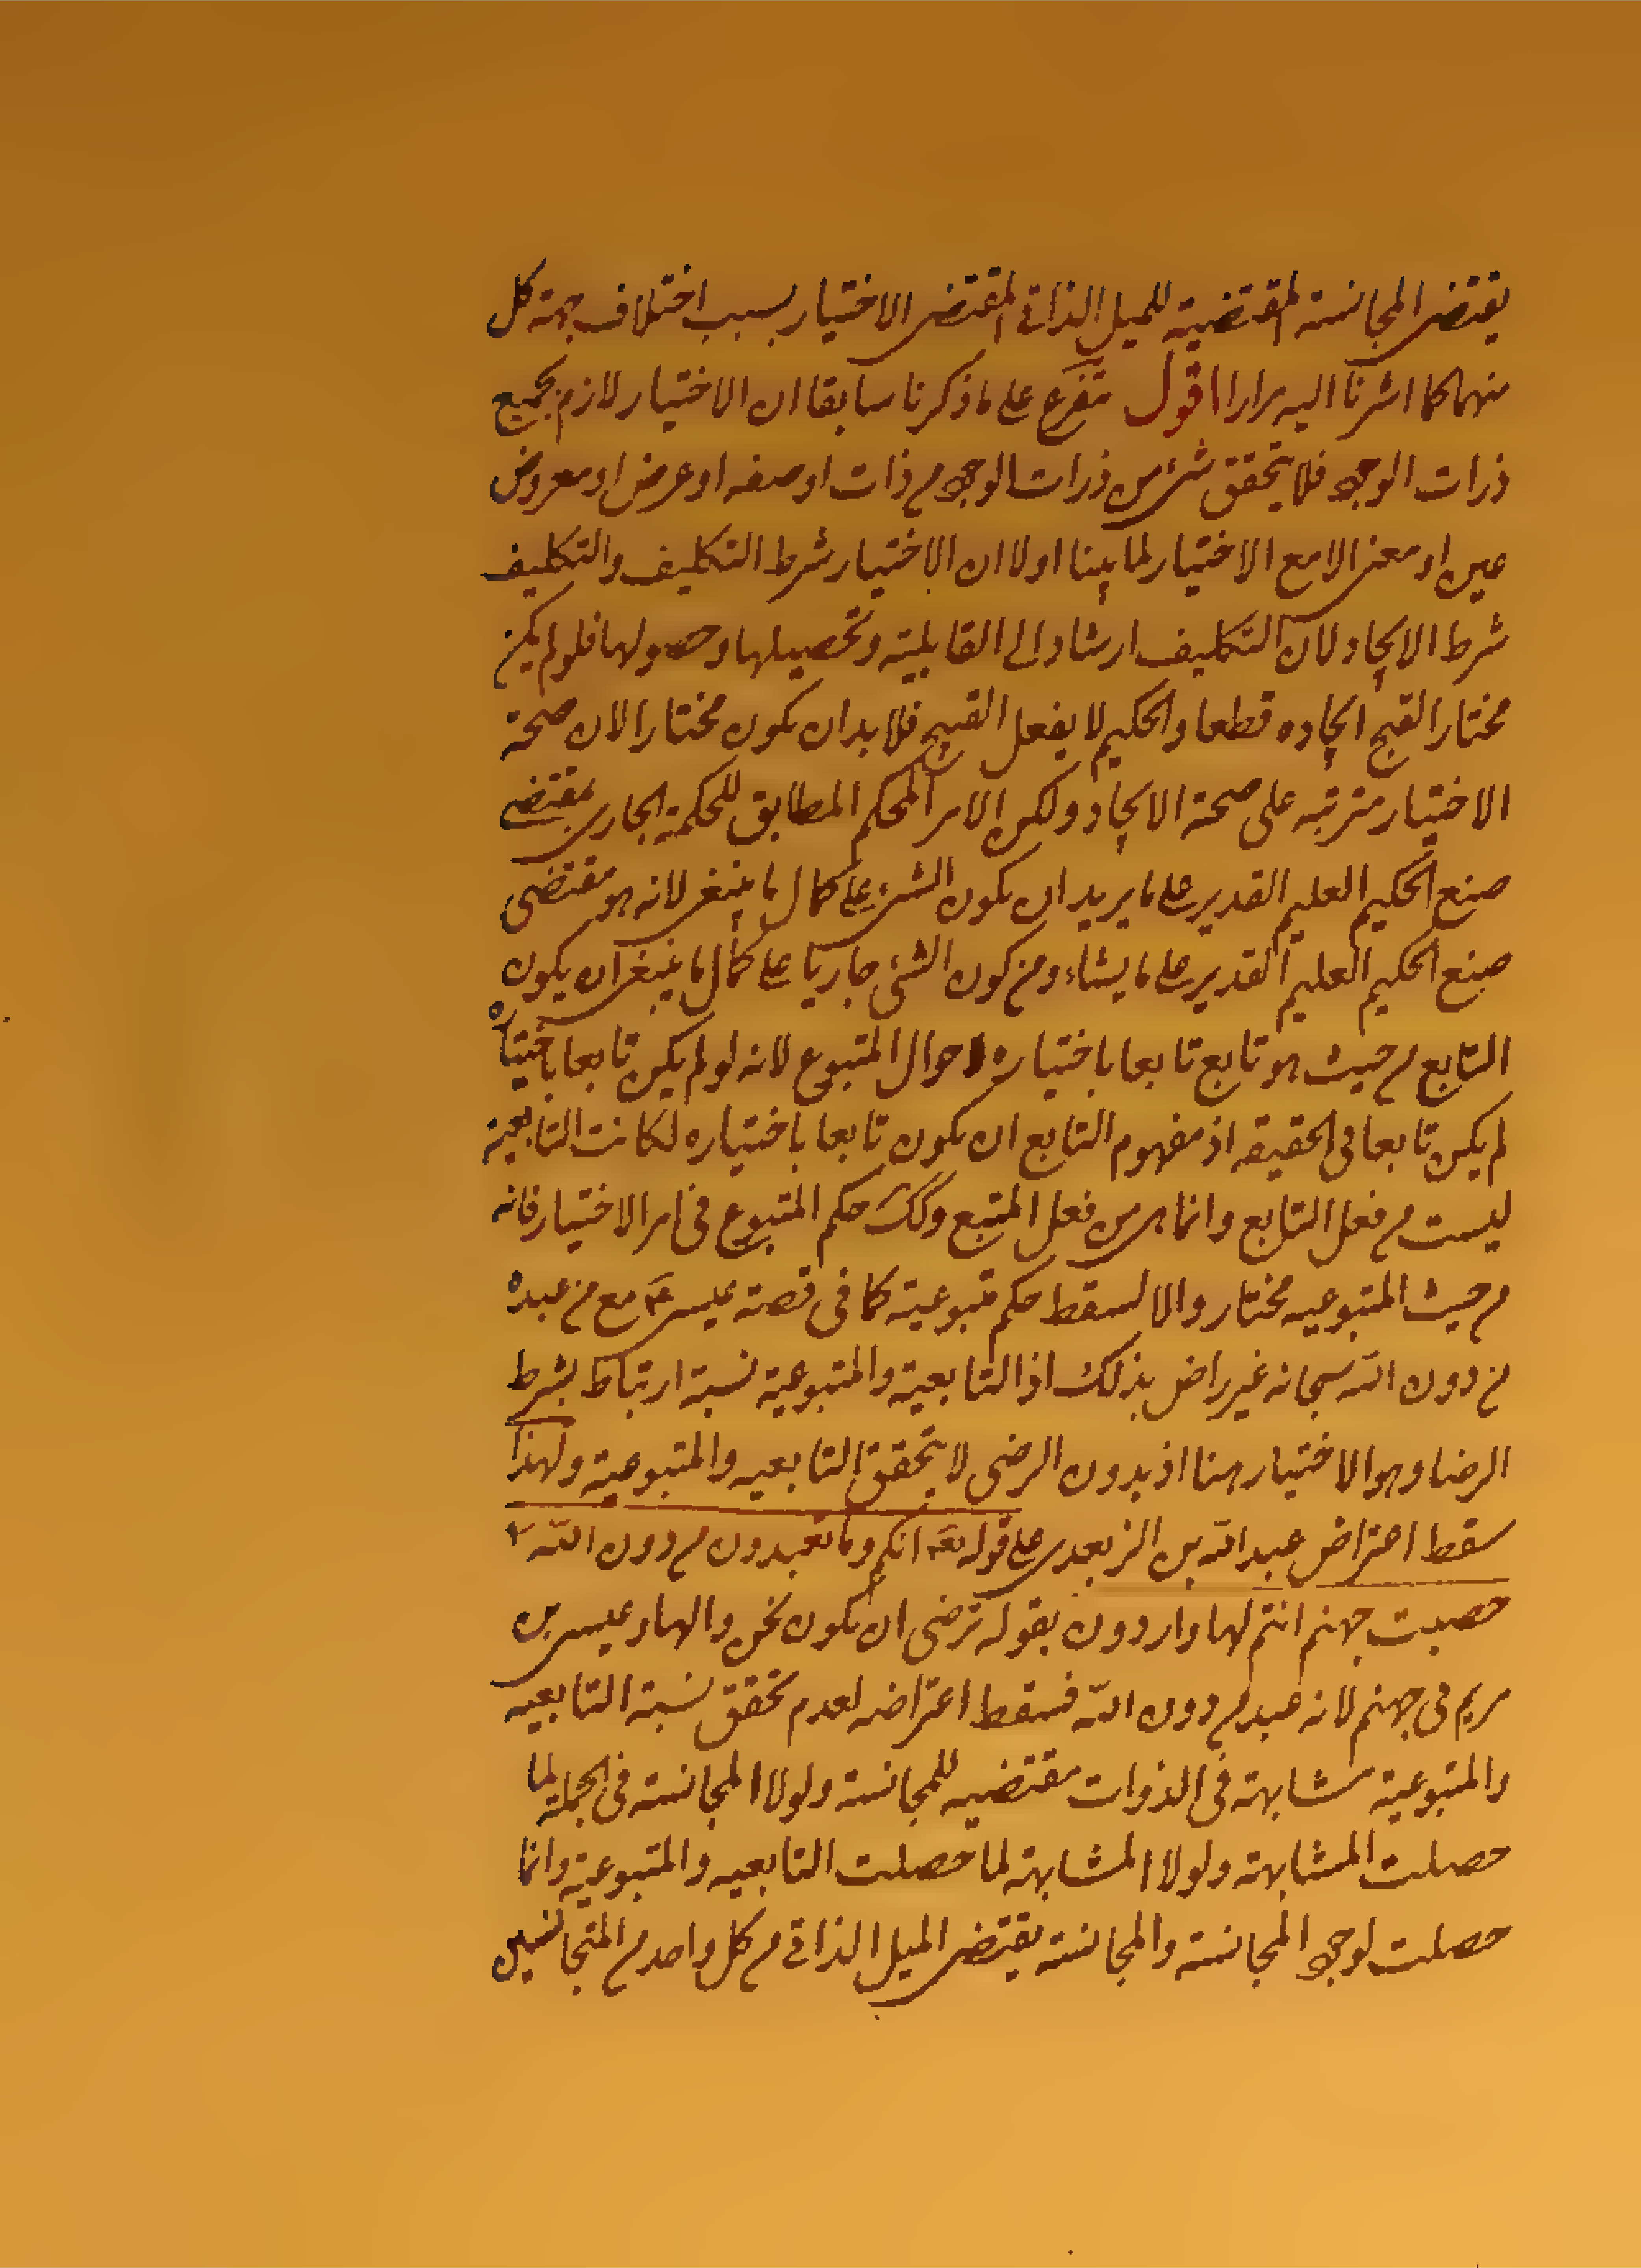 يقتضى المجانسة المقتضية للميل الذاتى المقتضى الاختيار بسبب اختلاف جهة كل
منهما كما اشرنا اليه مرارا اقول تفرع على ما ذكرنا سابقا ان الاختيار لازم بجميع
ذرات الوجود فلا يتحقق شئ من ذرات الوجود من ذات او صفه او عرض او معروض
عين او معنى الا مع الاختيار لما بينا اولا ان الاختيار شرط التكليف والتكليف
شرط الايجاد لان التكليف ارشاد الى القابلية وتحصيلها وحصولها فلو لم يكن
مختارا لقبح ايجاده قطعا والحكيم لا يفعل القبيح فلا بد ان يكون مختارا لان صحة
الاختيار مترتبه على صحة الايجاد ولكن الامر المحكم المطابق للحكمة الجارى بمقتضى
صنع الحكيم العليم القدير على ما يريد ان يكون الشئ على كمال ما ينبغى لانه هو مقتضى
صنع الحكيم العليم القدير على ما يشاء ومن كون الشئ جاريا على كمال ما ينبغى ان يكون
التابع من حيث هو تابع تابعا باختياره لاحوال المتبوع لانه لو لم يكن تابعا باختياره
لم يكن تابعا فى الحقيقه اذ مفهوم التابع ان يكون تابعا باختياره لكانت التابعية
ليست من فعل التابع وانما هى من فعل المتبع وكك حكم المتبوع فى امر الاختيار فانه
من حيث المتبوعيه مختار والا لسقط حكم متبوعية كما فى قصة عيسى ع مع من عبده
من دون الله سبحانه غير راض بذلك اذ التابعية والمتبوعية نسبة ارتباط بشرط
الرضا وهو الاختيار هنا اذ بدون الرضى لا يتحقق التابعيه والمتبوعية ولهذا
سقط اعتراض عبدالله بن الزبعرى على قوله تع انكم وما تعبدون من دون الله
حصبت جهنم انتم لها واردون بقوله ترضى ان يكون نحن والهنا وعيسى بن
مريم فى جهنم لانه عبد من دون الله فسقط اعتراضه لعدم تحقق نسبة التابعيه
والمتبوعية مشابهة فى الذوات مقتضيه للمجانسة ولولا المجانسة فى الجملة لما
حصلت المشابهة ولولا المشابهة لما حصلت التابعيه والمتبوعية وانما
حصلت لوجود المجانسة والمجانسة يقتضى الميل الذاتى من كل واحد من المتجانسين